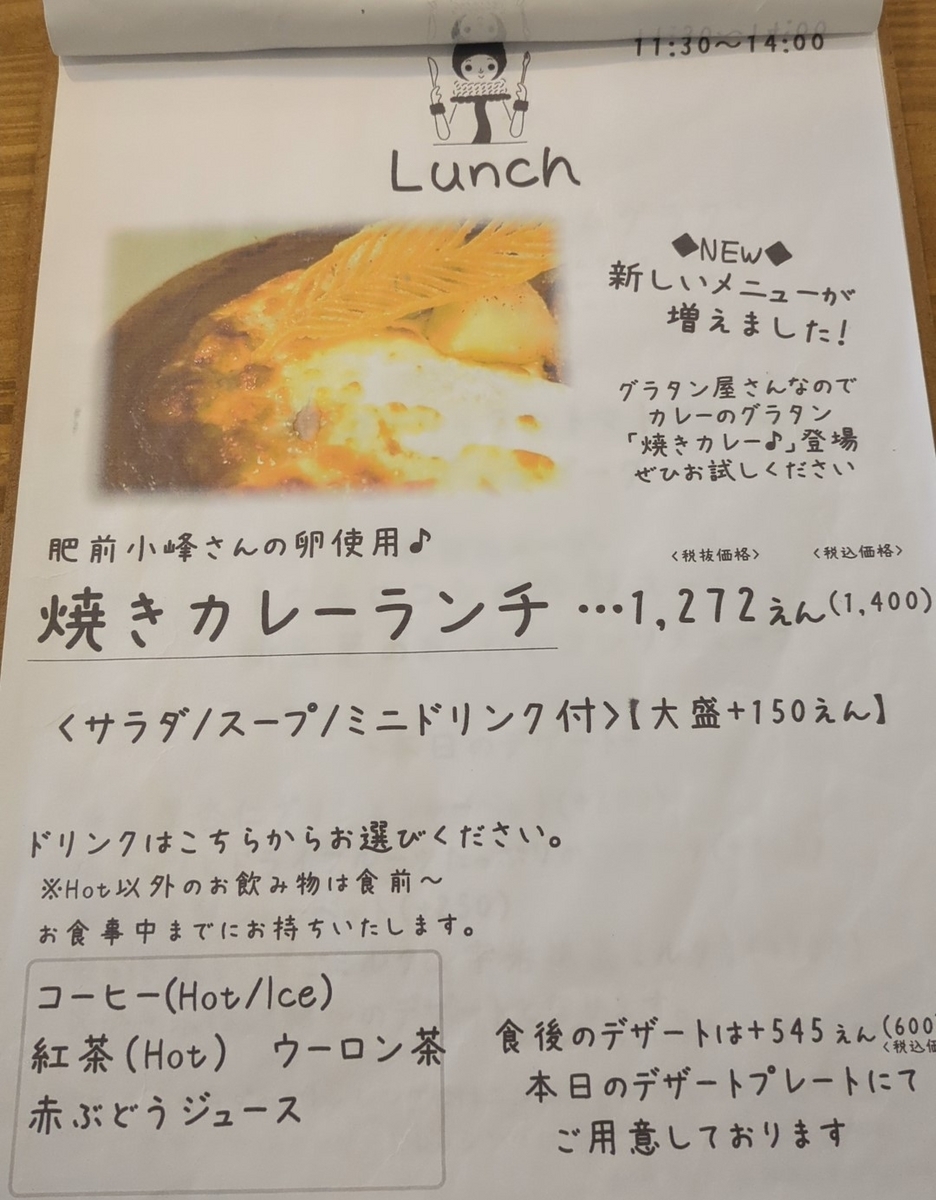 11:30～14:00
Lunch
◆NEW◆
新しいメニューが
増えました!
グラタン屋さんなので
カレーのグラタン
「焼きカレー♪」登場
ぜひお試しください
肥前小峰さんの卵使用♪
<税抜価格> <税込価格>
焼きカレーランチ …1,272えん(1,400)
<サラダ/スープ/ミニドリンク付>【大盛+150えん】
ドリンクはこちらからお選びください。
※Hot以外のお飲み物は食前～
お食事中までにお持ちいたします。
コーヒー(Hot/Ice)
紅茶(Hot) ウーロン茶
赤ぶどうジュース
食後のデザートは+545えん(600
<税込価
本日のデザートプレートにて
ご用意しております